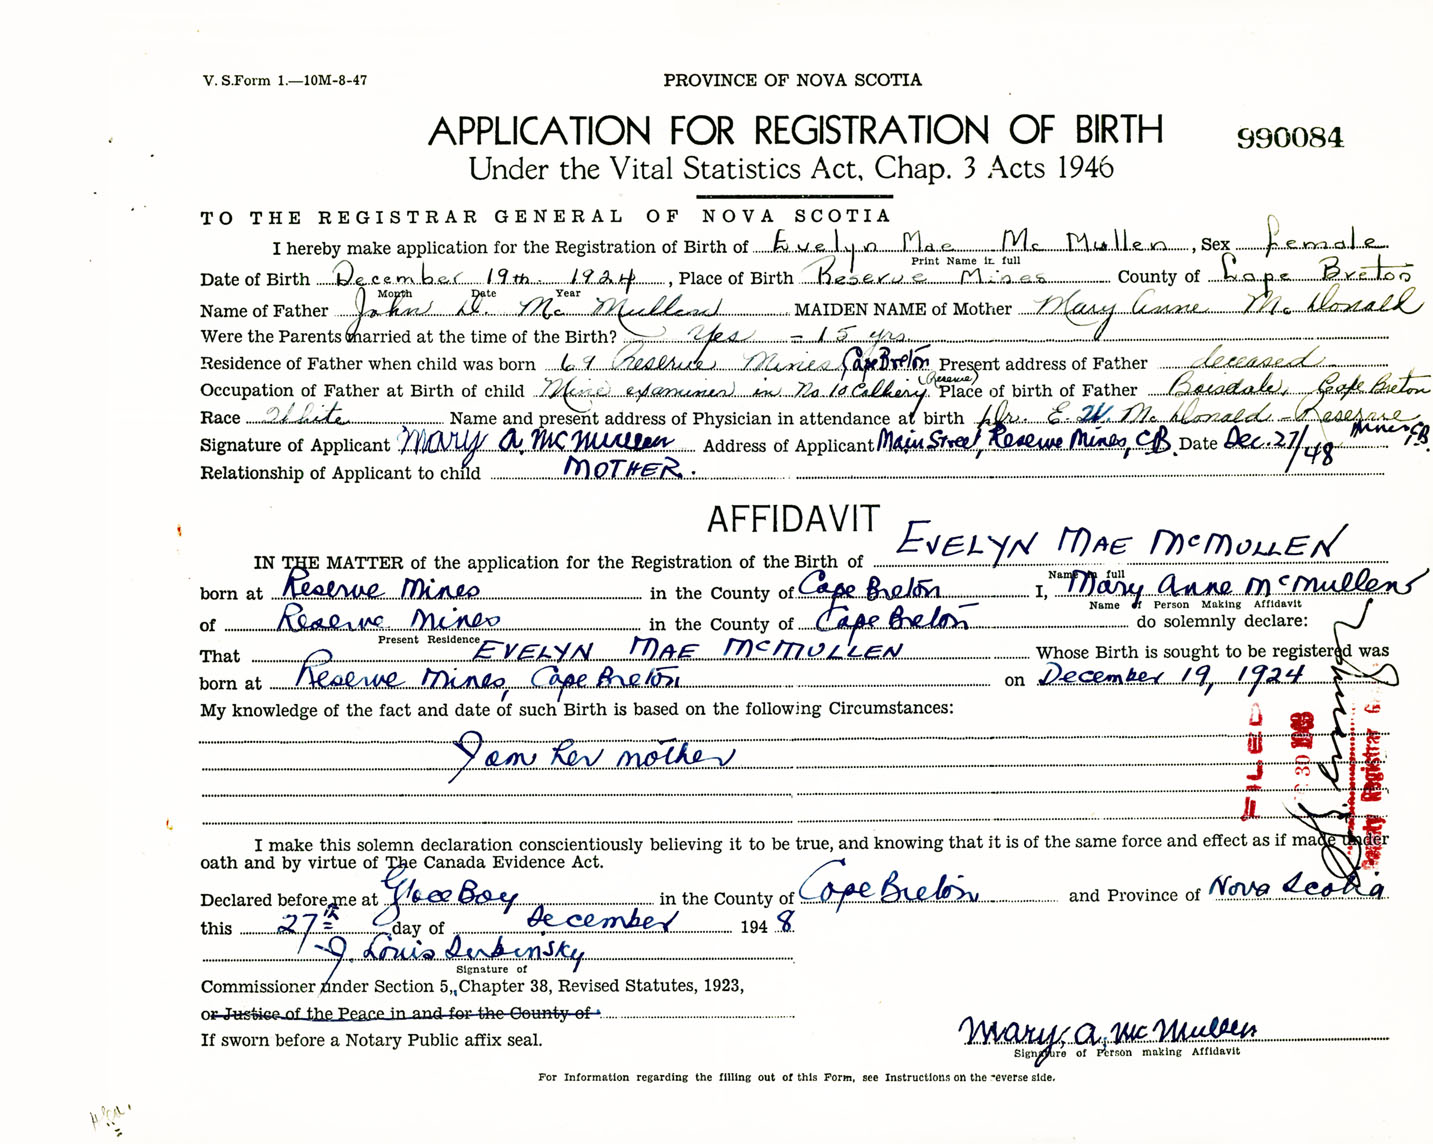 V. S.Form 1.—10M-8-47
PROVINCE OF NOVA SCOTIA
APPLICATION FOR REGISTRATION OF BIRTH
990084
Under the Vital Statistics Act, Chap. 3 Acts 1946
TO THE REGISTRAR GENERAL OF NOVA SCOTIA
I hereby make application for the Registration of Birth of Evelyn Mae McMullen, Sex female
Print Name in full
Date of Birth December 19th. 1924, Place of Birth Reserve Mines County of Cape Breton
Month Date Year
Name of Father John D. McMullen MAIDEN NAME of Mother Mary Anne McDonald
Were the Parents married at the time of the Birth? Yes - 15 yrs.
Residence of Father when child was born 69 Reserve Mines, Cape Breton Present address of Father deceased
Occupation of Father at Birth of child Mine examiner in No 10 Colliery (Reserve) Place of birth of Father Boisdale, Cape Breton
Race White Name and present address of Physician in attendance at birth Dr. E. W. McDonald - Reserve Mines, C.B.
Signature of Applicant Mary A. McMullen Address of Applicant Main Street, Reserve Mines, C.B. Date Dec. 27/48
Relationship of Applicant to child MOTHER.
AFFIDAVIT
IN THE MATTER of the application for the Registration of the Birth of EVELYN MAE McMULLEN
Name in full
born at Reserve Mines in the County of Cape Breton I, Mary Anne McMullen
Name of Person Making Affidavit
of Reserve Mines in the County of Cape Breton do solemnly declare:
Present Residence
That EVELYN MAE McMULLEN Whose Birth is sought to be registered was
born at Reserve Mines, Cape Breton on December 19, 1924
My knowledge of the fact and date of such Birth is based on the following Circumstances:
I am her mother
FILED
30 1948
Deputy Registrar G
I make this solemn declaration conscientiously believing it to be true, and knowing that it is of the same force and effect as if made under
oath and by virtue of The Canada Evidence Act.
Declared before me at Glace Bay in the County of Cape Breton and Province of Nova Scotia
this 27th day of December 1948.
J. Louis Dubinsky
Signature of
Commissioner under Section 5, Chapter 38, Revised Statutes, 1923,
or Justice of the Peace in and for the County of
If sworn before a Notary Public affix seal.
Mary A. McMullen
Signature of Person making Affidavit
For Information regarding the filling out of this Form, see Instructions on the reverse side.